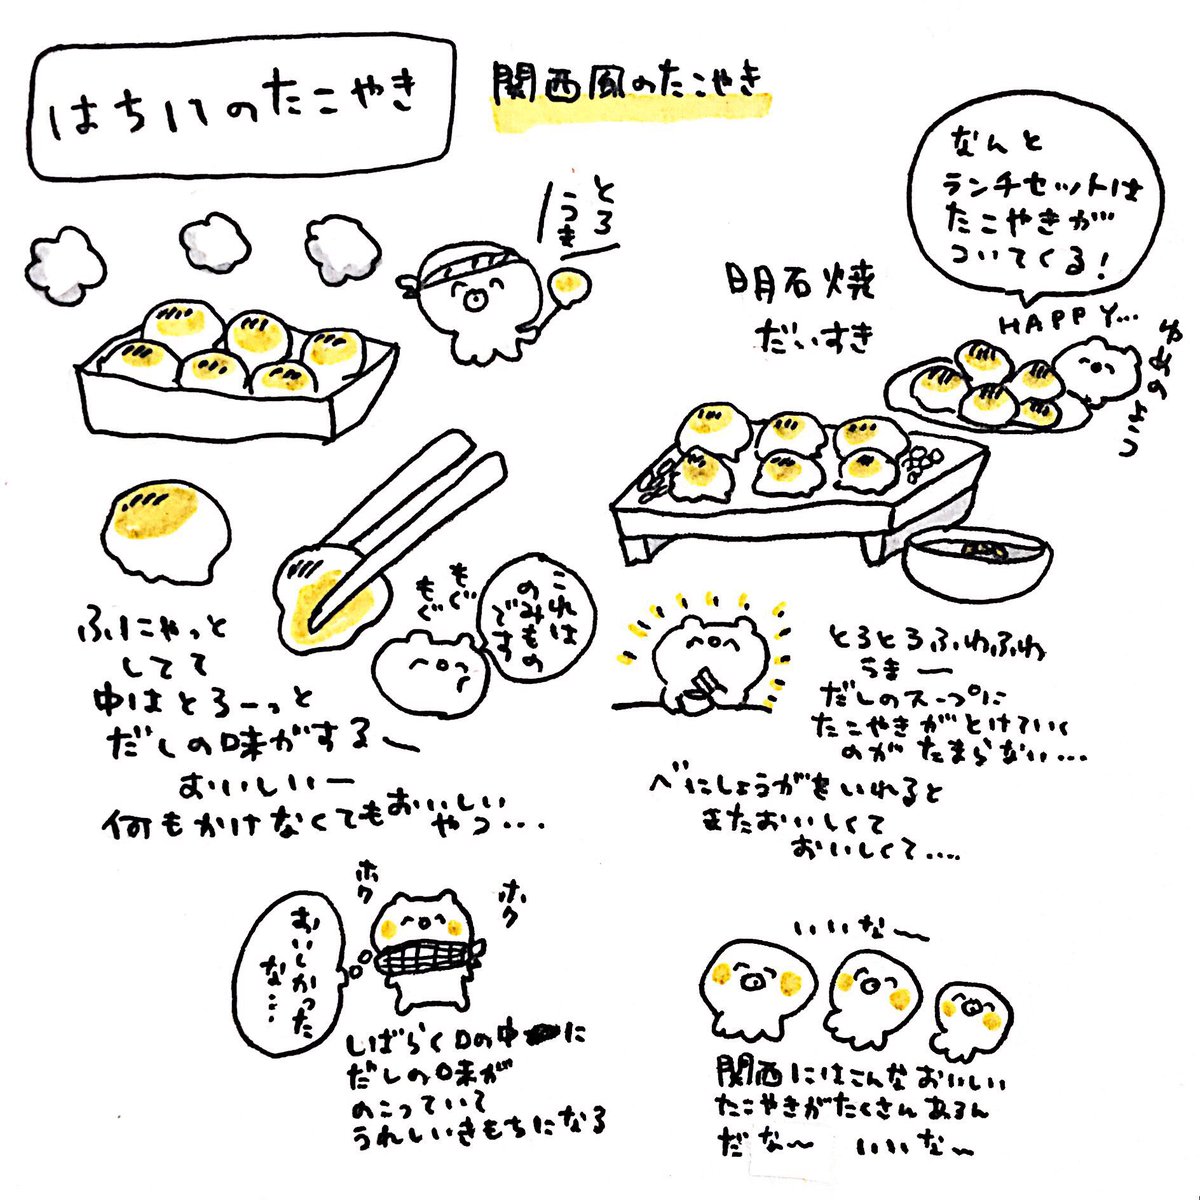 はちハのたこやき
関西風のたこやき
とろ
うま
なんと
ランチセットは
たこやきが
ついてくる!
HAPPY...
ゆめのよう
明石焼
だいすき
これは
のみもの
です
もぐ
もぐ
ふにゃっと
してて
中はとろーっと
だしの味がするー
おいしいー
何もかけなくてもおいしい
やつ...
とろとろふわふわ
うまー
だしのスープに
たこやきがとけていく
のがたまらない...
べにしょうがをいれると
またおいしくて
おいしくて....
ホク
ホク
おいしかった
な...
しばらく口の中に
だしの味が
のこっていて
うれしいきもちになる
いいな〜
関西にはこんなおいしい
たこやきがたくさんあるん
だな〜 いいな〜